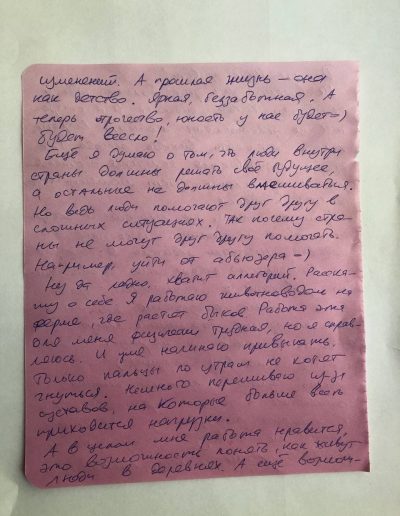 изменений. А прошлая жизнь – она
как детство. Яркая, беззаботная. А
теперь отрочество, юность у нас будет =)
Будет весело!
Ещё я думаю о том, что люди внутри
страны должны решать своё будущее,
а остальные не должны вмешиваться.
Но ведь люди помогают друг другу в
сложных ситуациях. Так почему стра-
ны не могут друг другу помогать.
Например, уйти от абьюзера =)
Ну да ладно, хватит аллегорий. Расска-
жу о себе. Я работаю животноводом на
ферме, где растят быков. Работа эта
для меня физически трудная, но я справ-
ляюсь. И уже начинаю привыкать.
Только пальцы по утрам не хотят
гнуться. Немного переживаю из-за
суставов, на которые больше всего
приходится нагрузки.
А в целом мне работа нравится,
это возможность понять, как живут
люди в деревнях. А ещё возмож-